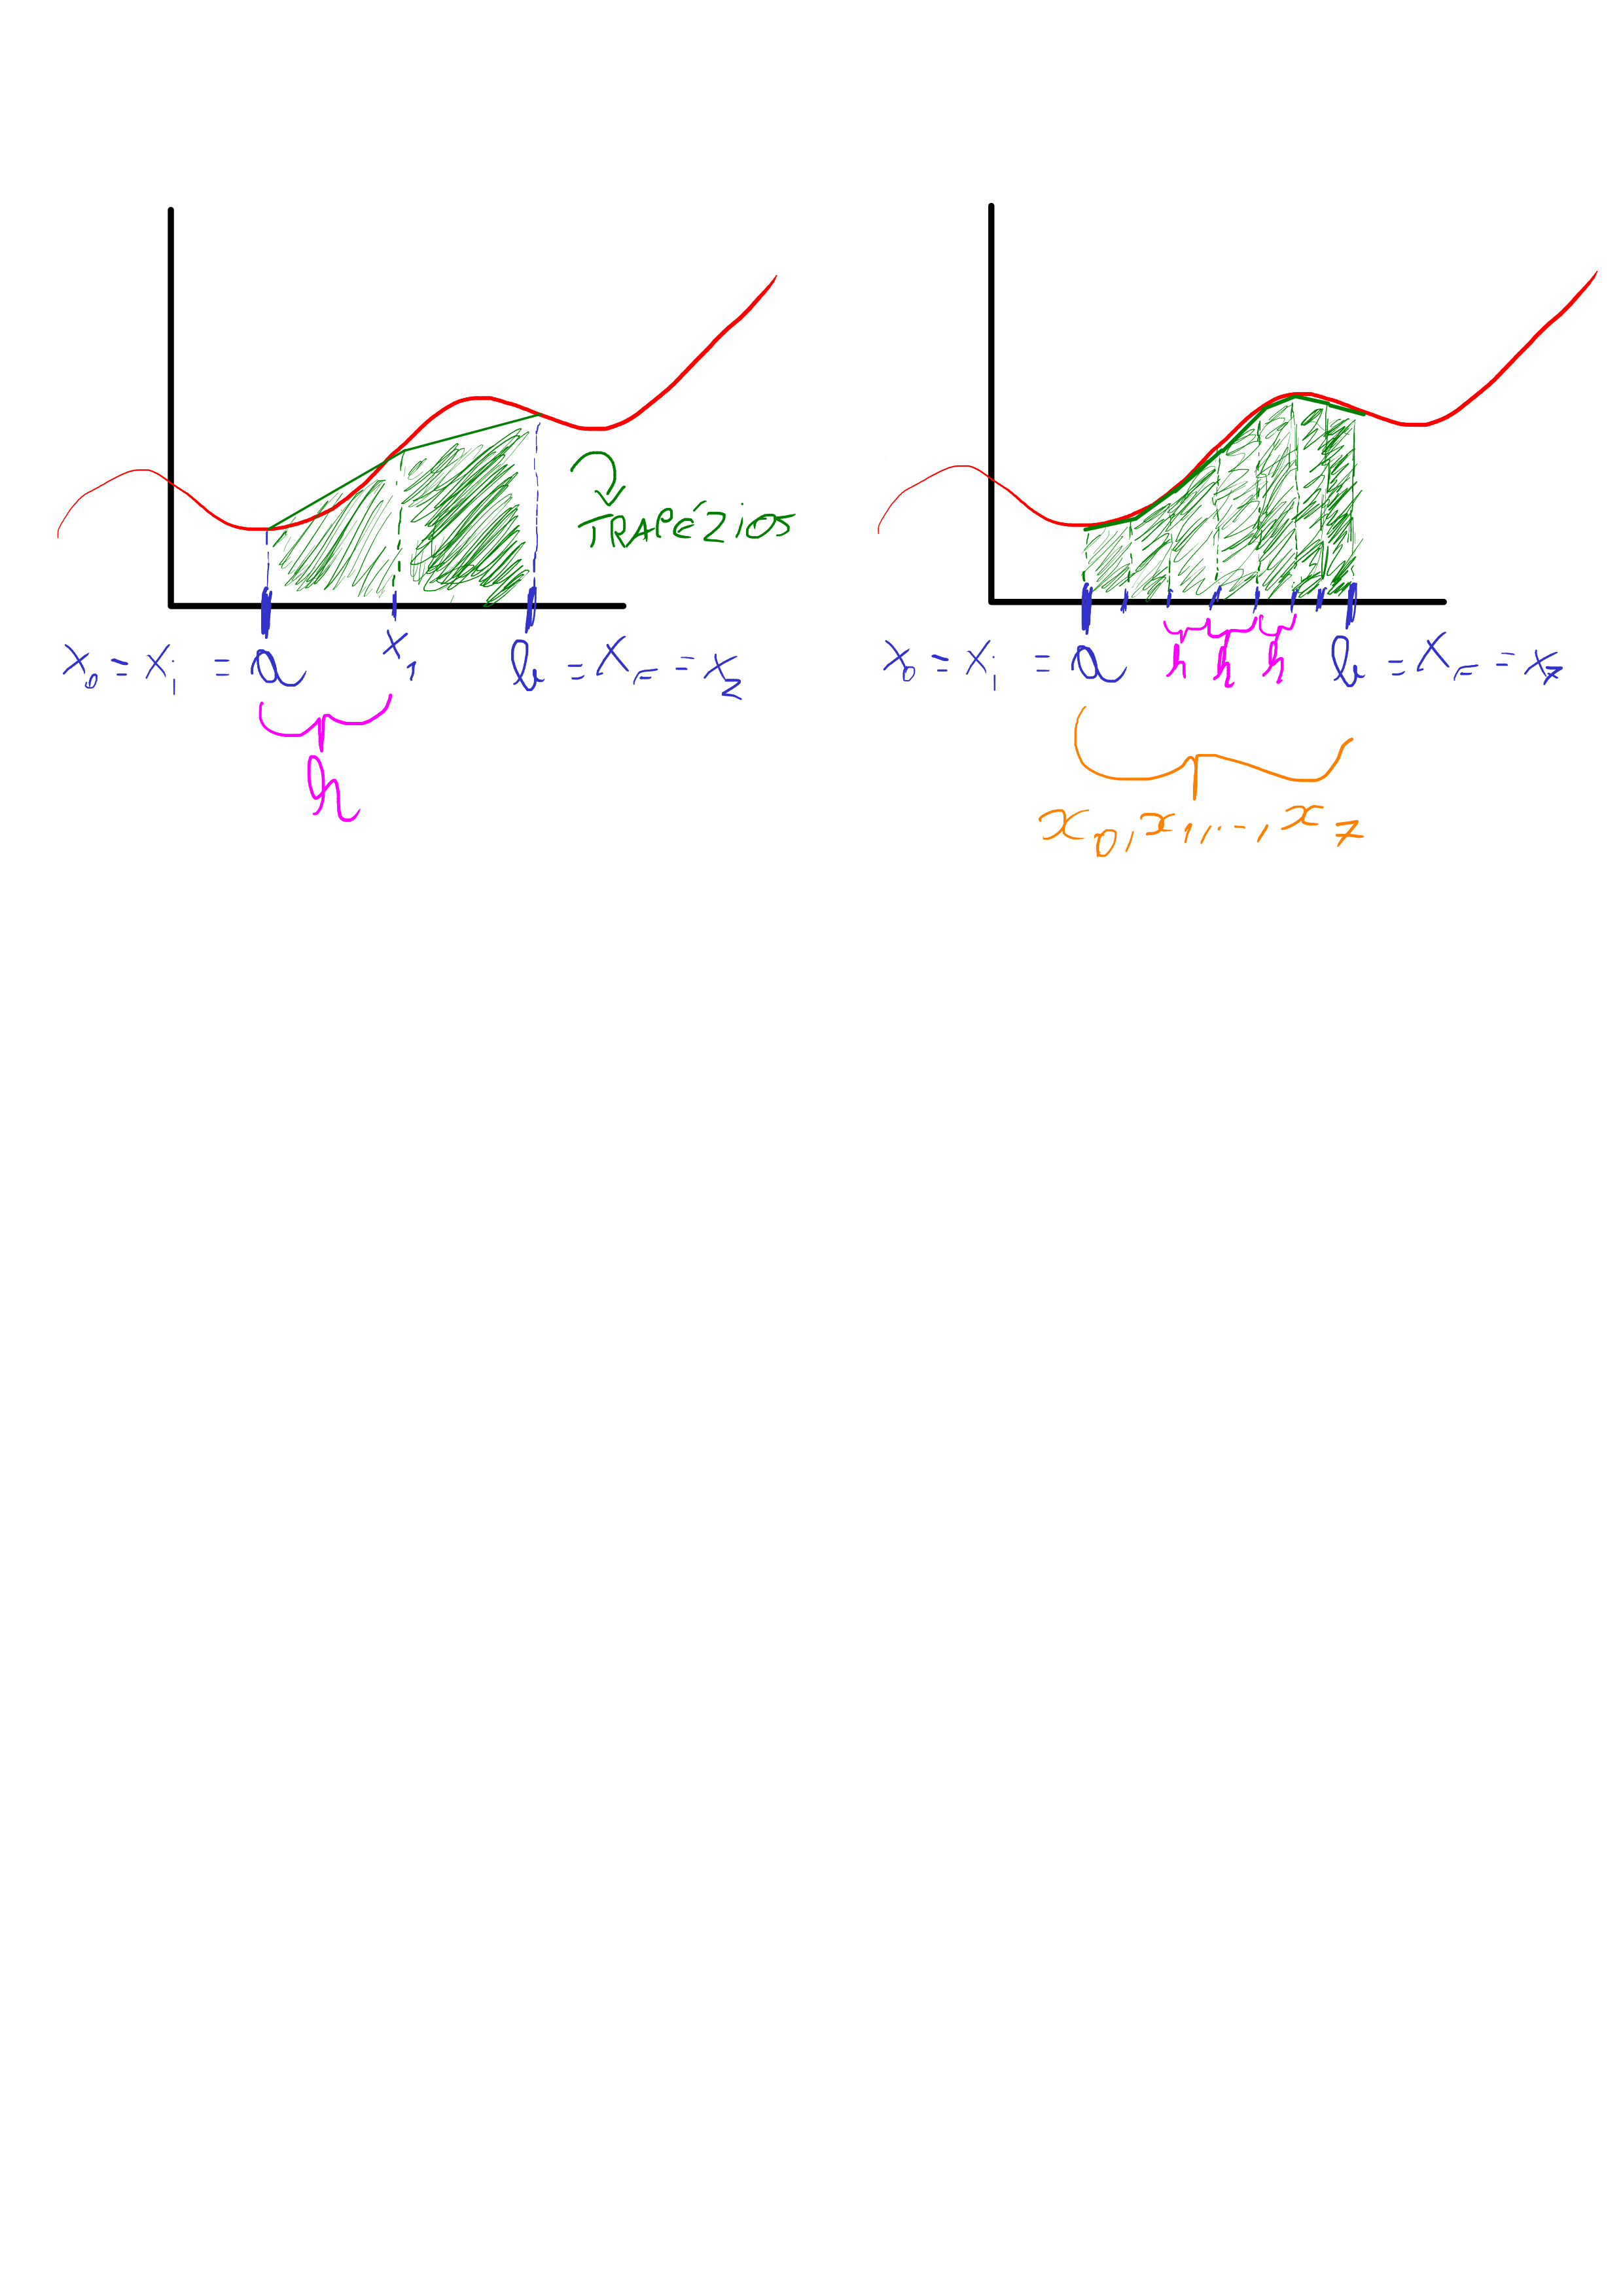 TRAPÉZIOS
x₀ = x_i = a
x₁
b = x_F = x₂
h
x₀ = x_i = a
h h h
b = x_F = x₇
x₀, x₁, ..., x₇